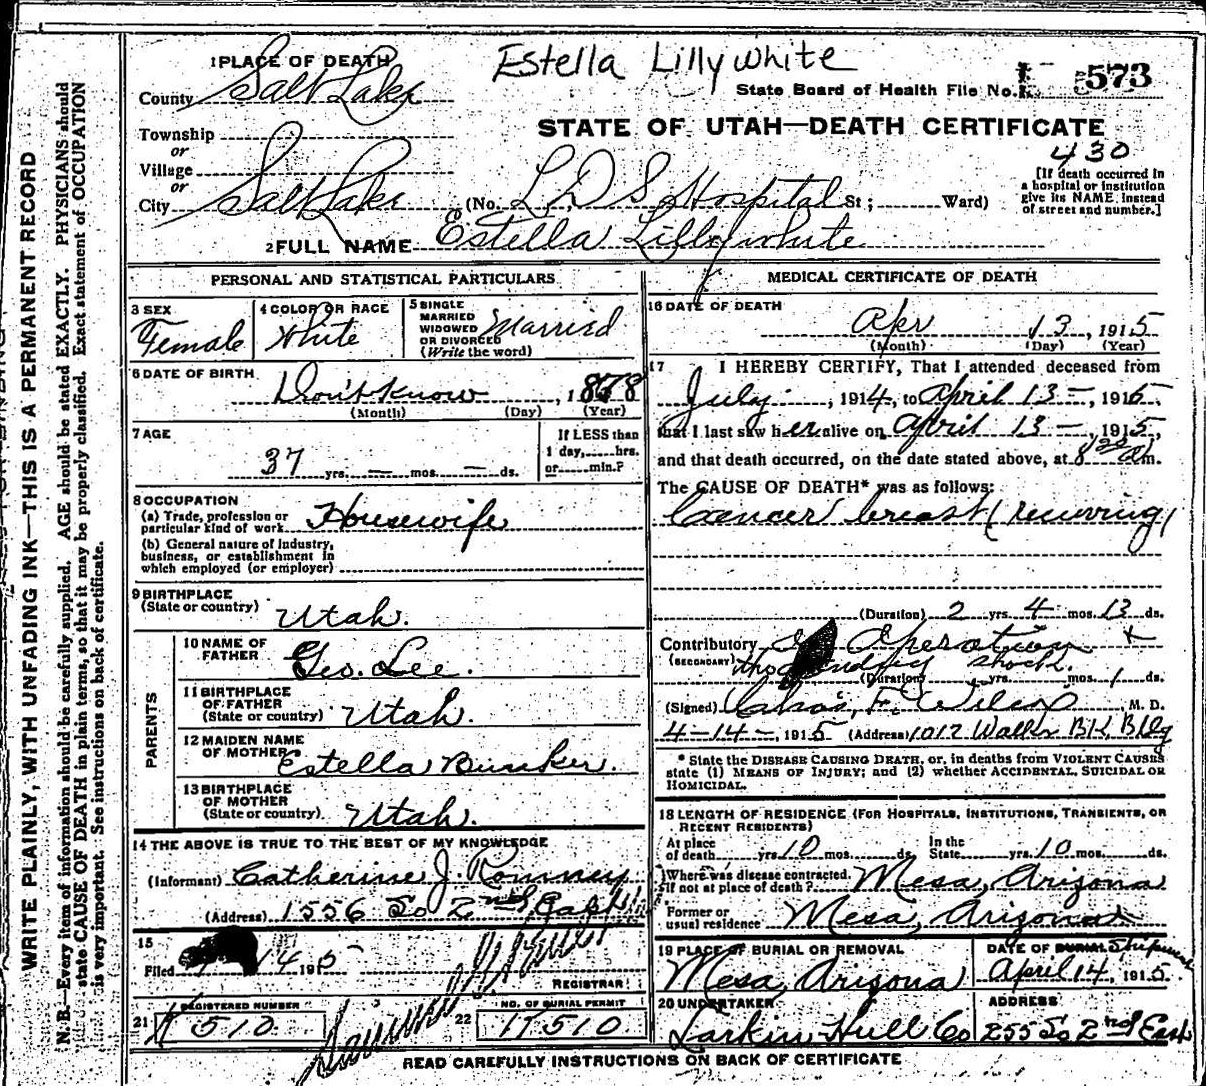 Estella Lillywhite
1 PLACE OF DEATH
County Salt Lake
State Board of Health File No. 573
STATE OF UTAH—DEATH CERTIFICATE
430
Township
or
Village
or
City Salt Lake (No. L.D.S. Hospital St; Ward)
[If death occurred in
a hospital or institution
give its NAME instead
of street and number.]
2 FULL NAME Estella Lillywhite
PERSONAL AND STATISTICAL PARTICULARS
3 SEX
Female
4 COLOR OR RACE
White
5 SINGLE
MARRIED
WIDOWED
OR DIVORCED
(Write the word)
Married
6 DATE OF BIRTH
Don't know, 1878
(Month) (Day) (Year)
7 AGE
37 yrs. — mos. — ds.
If LESS than
1 day, hrs.
or min.?
8 OCCUPATION
(a) Trade, profession or
particular kind of work Housewife
(b) General nature of Industry,
business, or establishment in
which employed (or employer)
9 BIRTHPLACE
(State or country) Utah.
PARENTS
10 NAME OF
FATHER Geo. Lee.
11 BIRTHPLACE
OF FATHER
(State or country) Utah.
12 MAIDEN NAME
OF MOTHER Estella Bunker.
13 BIRTHPLACE
OF MOTHER
(State or country) Utah.
14 THE ABOVE IS TRUE TO THE BEST OF MY KNOWLEDGE
(Informant) Catherine J. Romney
(Address) 1556 So 2nd East
15
Filed 14 1915
REGISTRAR
21 REGISTERED NUMBER
510
22 NO. OF BURIAL PERMIT
510
MEDICAL CERTIFICATE OF DEATH
16 DATE OF DEATH
Apr 13, 1915
(Month) (Day) (Year)
17 I HEREBY CERTIFY, That I attended deceased from
July, 1914, to April 13 —, 1915,
that I last saw her alive on April 13 —, 1915,
and that death occurred, on the date stated above, at 8 a m.
The CAUSE OF DEATH* was as follows:
Cancer breast (recurring)
(Duration) 2 yrs. 4 mos. 13 ds.
Contributory Operation
(SECONDARY) shock.
(Duration) yrs. mos. 1 ds.
(Signed) Chas. F. Wilcox, M. D.
4-14-, 1915 (Address) 1012 Walker Bk Bldg
* State the DISEASE CAUSING DEATH, or, in deaths from VIOLENT CAUSES
state (1) MEANS OF INJURY; and (2) whether ACCIDENTAL, SUICIDAL OR
HOMICIDAL.
18 LENGTH OF RESIDENCE (FOR HOSPITALS, INSTITUTIONS, TRANSIENTS, OR
RECENT RESIDENTS)
At place
of death yrs. 10 mos. ds.
In the
State yrs. 10 mos. ds.
Where was disease contracted.
if not at place of death? Mesa, Arizona
Former or
usual residence Mesa, Arizona
19 PLACE OF BURIAL OR REMOVAL
Mesa, Arizona
DATE OF BURIAL Shipment
April 14, 1915.
20 UNDERTAKER
Larkin Hull Co
ADDRESS
255 So 2nd East
READ CAREFULLY INSTRUCTIONS ON BACK OF CERTIFICATE
WRITE PLAINLY, WITH UNFADING INK—THIS IS A PERMANENT RECORD
N. B.—Every item of information should be carefully supplied. AGE should be stated EXACTLY. PHYSICIANS should
state CAUSE OF DEATH in plain terms, so that it may be properly classified. Exact statement of OCCUPATION
is very important. See instructions on back of certificate.